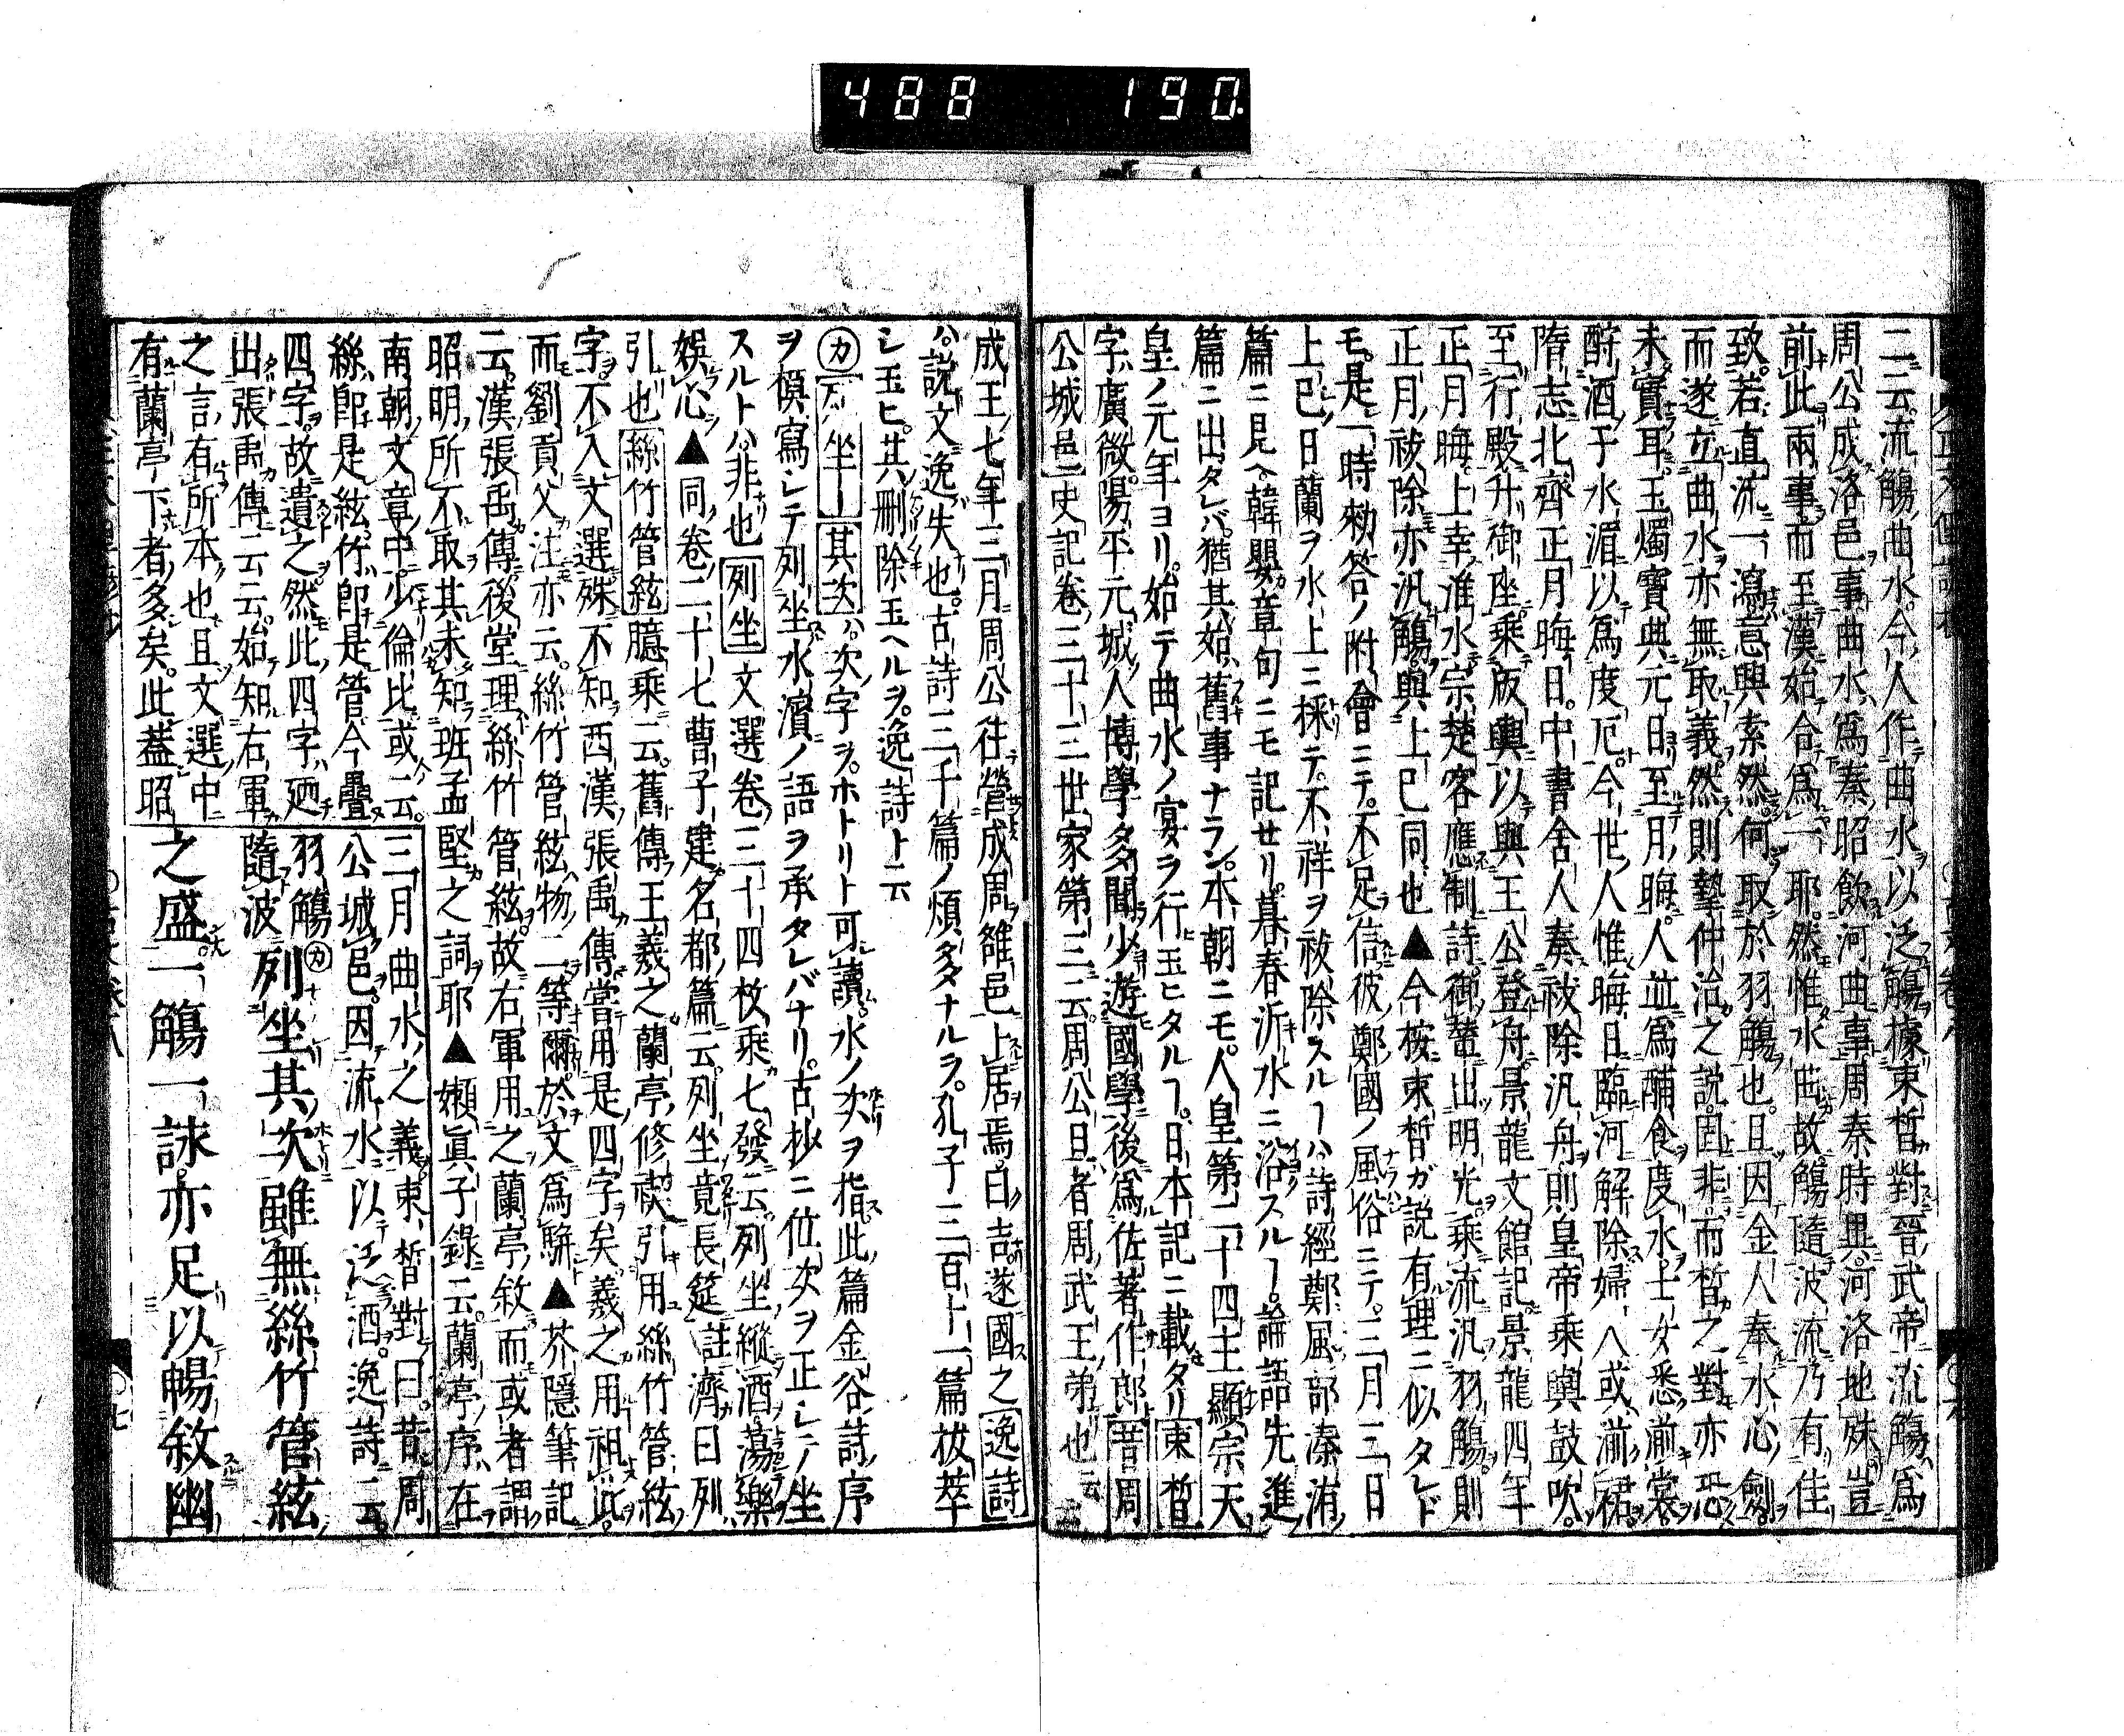 488 190
二云流觴曲水今人作曲水以泛觴據束晳對晉武帝流觴爲
周公成洛邑事曲水爲秦昭飲河曲事周秦時異河洛地殊豈
前此兩事而至漢始合爲一耶然惟水曲故觴隨波流乃有佳
致若直流一瀉意興索然何取於羽觴也且因金人奉水心劍
而遂立曲水亦無取義然則摯仲洽之説固非而晳之對亦恐
未實耳玉燭寶典元日至月晦人並爲酺食度水士女悉湔裳
酹酒于水湄以爲度厄今世人惟晦日臨河解除婦人或湔裙
隋志北齊正月晦日中書舍人奏祓除汎舟則皇帝乘輿鼓吹
至行殿升御座乘版輿以與王公登舟景龍文館記景龍四年
正月晦上幸滻水宗楚客應制詩御輦出明光乘流汎羽觴則
正月祓除亦汎觴與上巳同也▲今按束晳ガ説有理ニ似タレド
モ是一時勅答ノ附會ニテ不足信彼鄭國ノ風俗ニテ三月三日
上巳日蘭ヲ水上ニ採テ不祥ヲ祓除スルヿハ詩經鄭風部溱洧
篇ニ見ヘ韓嬰章句ニモ記セリ暮春沂水ニ浴スルヿ論語先進
篇ニ出タレバ猶其始舊事ナラン本朝ニモ人皇第二十四主顯宗天
皇ノ元年ヨリ始テ曲水ノ宴ヲ行玉ヒタルヿ日本記ニ載タリ束晳
字廣微陽平元城人博學多聞少遊國學後爲佐著作郎昔周
公城邑史記卷三十三世家第三云周公旦者周武王弟也云云
成王七年三月周公往營成周雒邑上居焉曰吉遂國之逸詩
ハ説文逸失也古詩三千篇ノ煩多ナルヲ孔子三百十一篇拔萃
シ玉ヒ其刪除玉ヘルヲ逸詩ト云
カ列坐ー其次ハ次字ヲホトリト可讀水ノ次ヲ指此篇金谷詩序
ヲ傾寫シテ列坐水濱ノ語ヲ承タレバナリ古抄ニ位次ヲ正シテノ坐
スルトハ非也列坐文選卷三十四枚乘七發云列坐縱酒蕩樂
娯心▲同卷二十七曹子建名都篇云列坐竟長筵註濟曰列
引也絲竹管絃臆乘云舊傳王羲之蘭亭修禊引用絲竹管絃
字不入文選殊不知西漢張禹傳嘗用是四字矣羲之用祖此
而劉貢父注亦云絲竹管絃物二等爾於文爲駢▲芥隱筆記
云漢張禹傳後堂理絲竹管絃故右軍用之蘭亭敘而或者謂
昭明所不取其未知班孟堅之詞耶▲嬾眞子錄云蘭亭序在
南朝文章中少倫比或云
絲即是絃竹即是管今疊
四字故遺之然此四字廼
出張禹傳云云始知右軍
之言有所本也且文選中
有蘭亭下者多矣此蓋昭
三月曲水之義束晳對曰昔周
公城邑因流水以泛酒逸詩云
羽觴
隨波
カ列坐其次雖無絲竹管絃
之盛一觴一詠亦足以暢敘幽